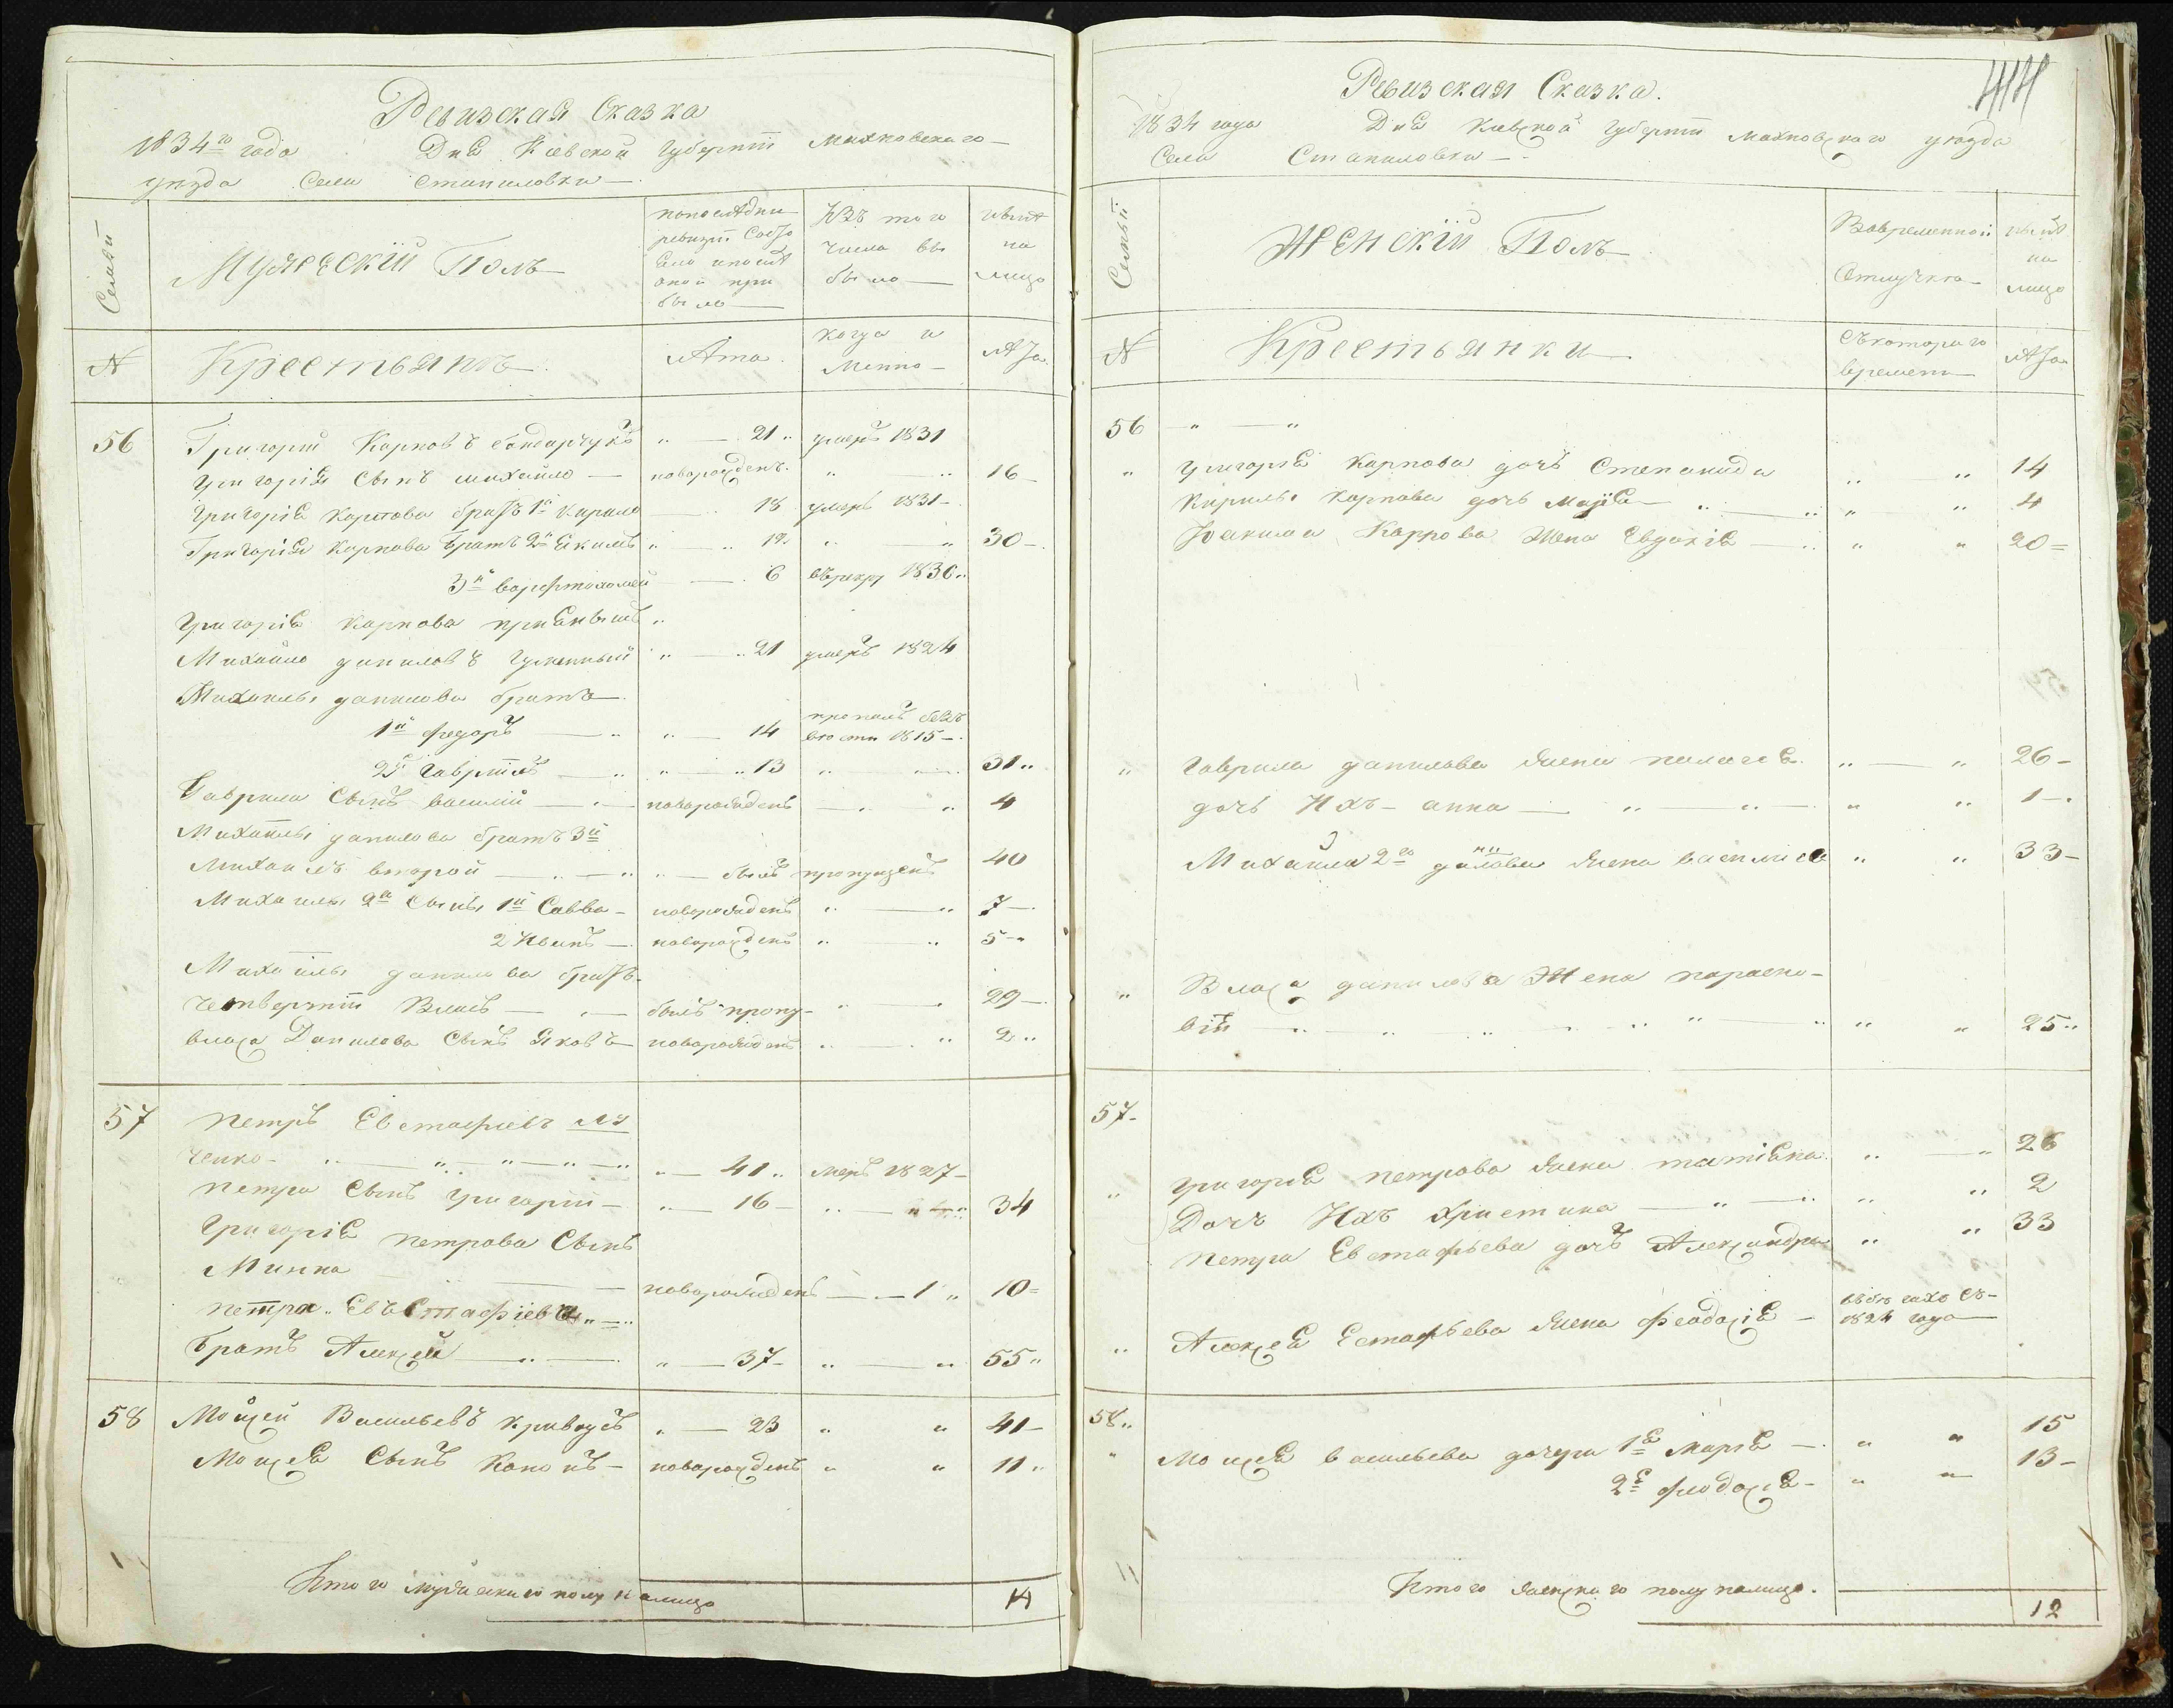 Ревизская Сказка
1834го года Дня Киевской Губернiи Махновскаго
уезда Села Станиловки
Семьи
Мужескiй Полъ
Изъ того числа вы было
ныне на лицо
№
Крестьянъ
Лета
когда и менно
Лета
56 Григорiй Карповъ Бондарчукъ " — 21 " умеръ 1831
Григорiя Сынъ михайло — новорожденъ " — " 16
Григорiя Карпова братъ 1й Кирило — 18 умеръ 1831
Григорiя Карпова братъ 2й Якимъ " — " 12 " " 30
3й варфтоломей — 6 въ рекру 183
Григорiя Карпова "
Михайло даниловъ " — " 21 умеръ 1824
Михаилы данилова братъ
1й федоръ — " " — 14 пропалъ безъ вести 1815
2й Гаврiилъ — " " — " 13 " " 31 "
Гаврила Сынъ василiй — " — новорожденъ — " " 4
Михаилы данилова братъ 3й
михаилъ второй — " — " " — былъ пропущенъ 40
Михаилы 2й Сынъ 1й Савва — новорожденъ " — " 7
2 Иванъ — новорожденъ " " 5
Михаилы данилова братъ
Четвертiй Власъ — " — былъ пропу- " — 29
власа Данилова Сынъ Яковъ новорожденъ " — " 2 "
57 Петръ Евстафiевъ
ченко " — " — " — " — " " — 41 " меръ 1827
Петра Сынъ Григорiй — " — 16 — " — 34
Григорiя Петрова Сынъ
Минка — новорожденъ — — 1 " 10
Петра Евстафiева " — "
братъ Алексей " — " — 37 — " — " 55 "
58 Мойсей Васильевъ Кривоусъ " — 23 " " 41
Моисея Сынъ Кононъ — новорожденъ " " 11 "
Итого мужескаго полу на лицо 14
Ревизская Сказка.
1834 года Дня Киевской Губернiи махновскаго уезда
Села Станиловки
Семьи
Женскiй Полъ
Вовременной Отлучке
ныне на лицо
№
Крестьянки
Съкотораго времени
Лета
56 " — "
" Григорiя Карпова дочь Степанида " " 14
Кирилы Карпова дочь Марiя " — " " " 4
Иоакима Карпова Жена Евдокiя — " " " 20
" Гаврила данилова жена палагея " — " 26
дочь Ихъ — анна — " — " — " " 1
Михаила 2го далова ни жена василиса " " 33
" Власа данилова Жена параско-
вiя " — " " — " " — " " " 25 "
57
" Григорiя Петрова жена татiяна " — " 26
Дочъ Ихъ Христина — " — " " " 2
Петра Евстафьева дочъ Александра " " 33
" Алексея Естафьева жена феодосiя — въбегахъ съ 1824 года
58 "
" Моисея васильева дочери 1я Марiя — " " 15
2я феодосiя — " " 13
Итого женскаго полу налицо. 12